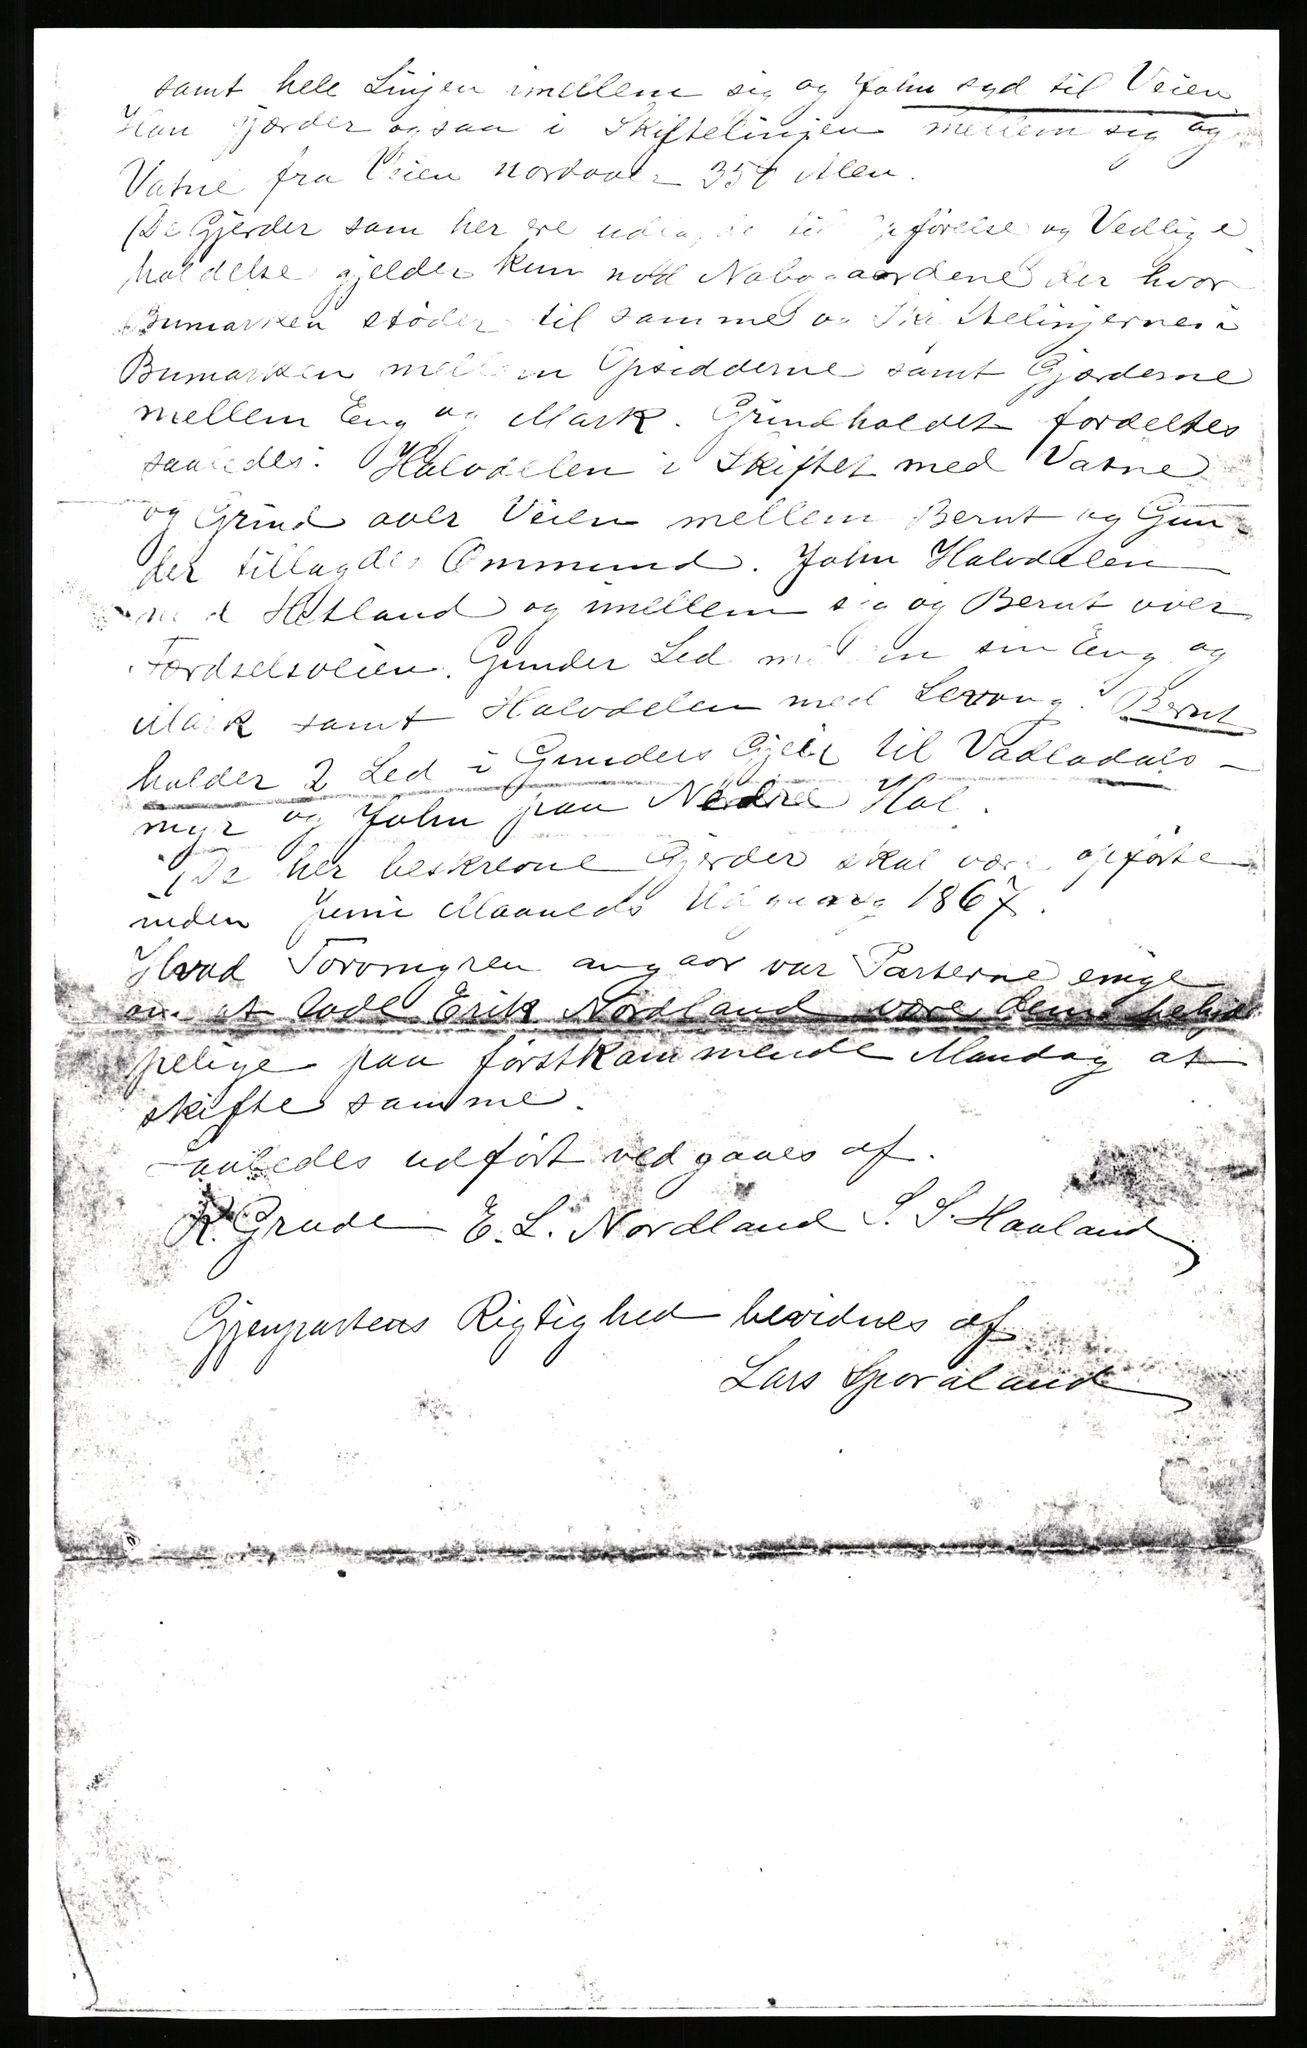 samt hele Linjen imellem sig og John syd til Veien.
Han gjærder ogsaa i Skiftelinjen mellem sig og
Vatne fra Veien nordover 350 Alen.
(De Gjerder som her ere udlagde til Opførelse og Vedlige
holdelse gjelder kun mod Nabogaardene der hvor
Bumarken støder til samme og Skiftelinjerne i
Bumarken mellem Opsidderne samt Gjærderne
mellem Eng og Mark. Grindholdet fordeltes
saaledes: Halvdelen i Skiftet med Vatne
og Grind over Veien mellem Bernt og Gun-
der tillagdes Ommund. John Halvdelen
med Hetland og imellem sig og Bernt over
Færdselsveien. Gunder Led mellem sin Eng og
Mark samt Halvdelen med Levang. Bernt
holder 2 Led i Gunders Gjeil til Vadladals-
myr og John paa Nedre Hol.
De her beskrevne Gjerder skal være opførte
inden Juni Maaneds Udgang 1867.
Hvad Torvmyren angaar var Parterne enige
om at lade Erik Nordland være dem behjel
pelige paa førstkommende Mandag at
skifte samme.
Saaledes udført vedgaaes af.
R. Grude E. L. Nordland S. S. Haaland
Gjenpartens Rigtighed bevidnes af
Lars Sporaland